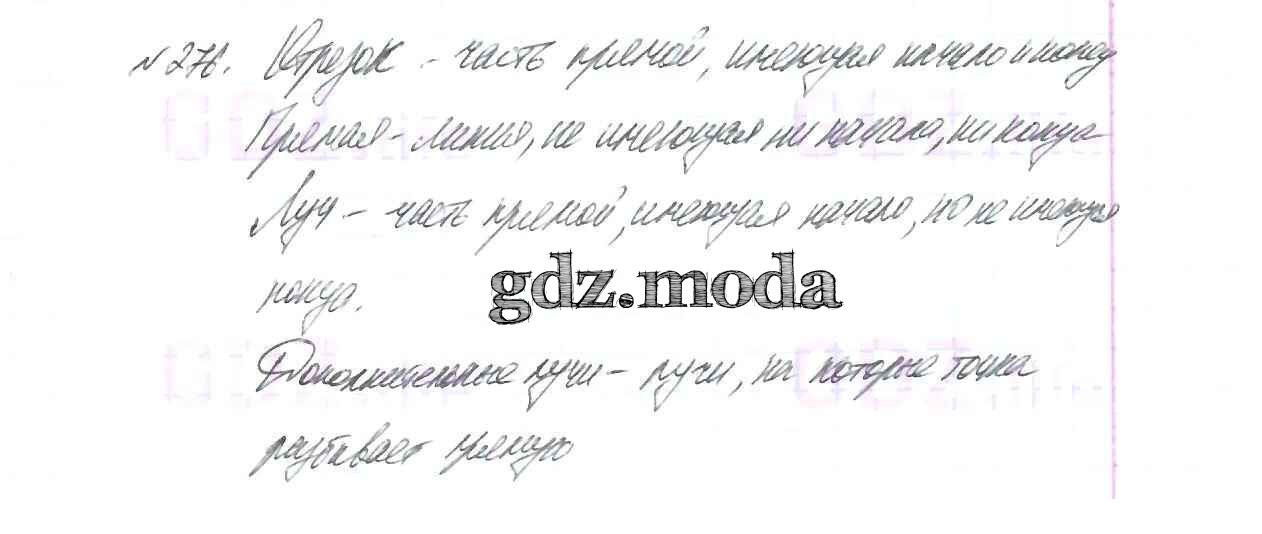 №276. Отрезок - часть прямой, имеющая начало и конец
Прямая - линия, не имеющая ни начала, ни конца
Луч - часть прямой, имеющая начало, но не имеющая
конца.
gdz.moda
Дополнительные лучи - лучи, на которые точка
разбивает прямую